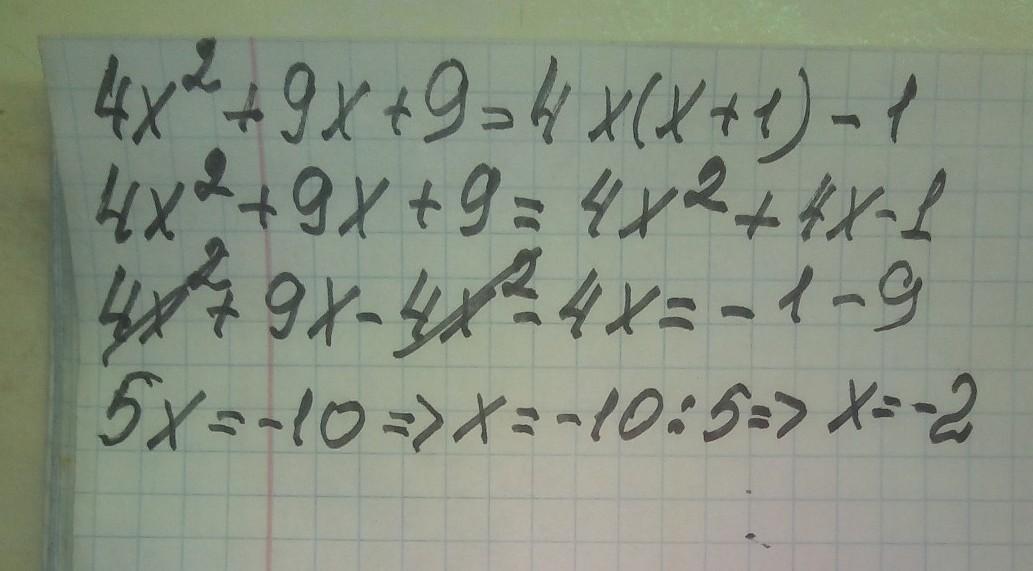 4x² + 9x + 9 = 4x(x + 1) - 1
4x² + 9x + 9 = 4x² + 4x - 1
4x² + 9x - 4x² - 4x = - 1 - 9
5x = -10 => x = -10 : 5 => x = -2